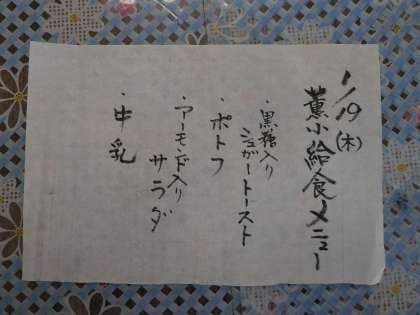 1/19(木)
薫小給食メニュー
・黒糖入り
シュガートースト
・ポトフ
・アーモンド入り
サラダ
・牛乳